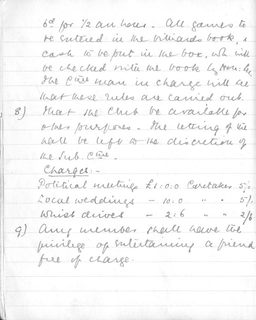 6d for 1/2 an hour. All games to
be entered in the billiards book, &
cash to be put in the box, wh. will
be checked with the book by
the Cttee man in charge will see
that these rules are carried out.
8) That the Club be available for
other purposes - the letting of the
Hall be left to the discretion of
the Sub. Cttee.
Charges:-
Political meetings £1.0.0 Caretaker 5/-
Local weddings - 10.0 " " 5/-
Whist drives - 2:6 " " 2/6
9) Any member shall have the
privilege of entertaining a friend
free of charge.